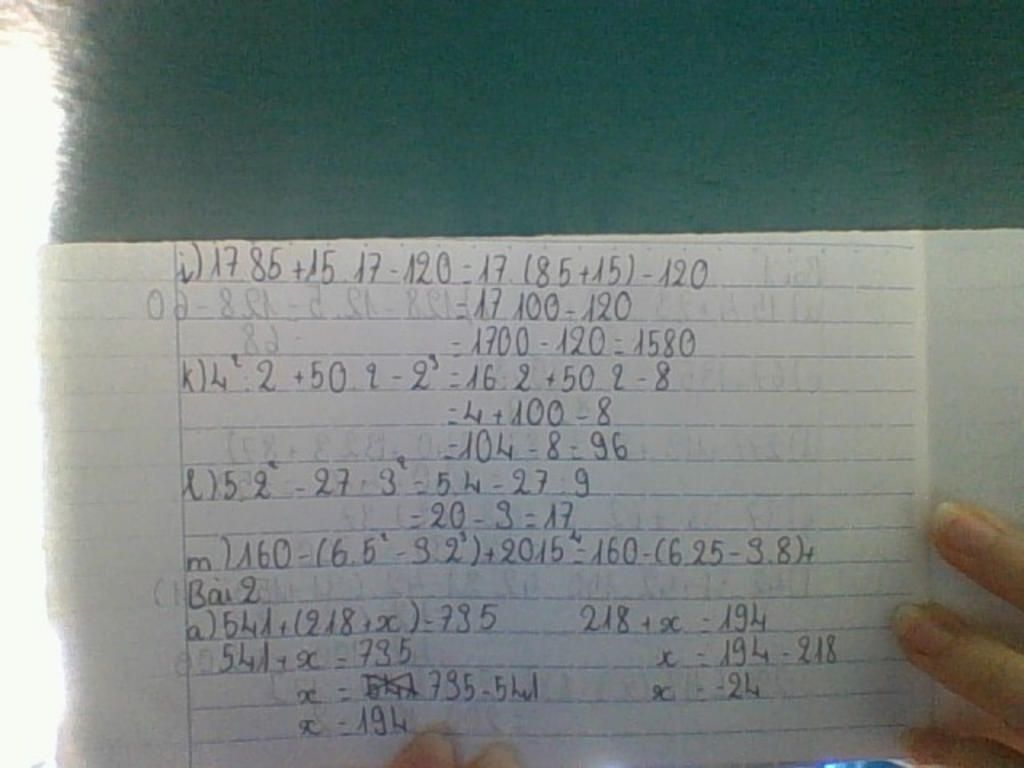 i) 17.85 + 15.17 - 120 = 17.(85 + 15) - 120
= 17.100 - 120
= 1700 - 120 = 1580
k) 4² : 2 + 50.2 - 2³ = 16 : 2 + 50.2 - 8
= 4 + 100 - 8
= 104 - 8 = 96
l) 5.2² - 27 : 3² = 5.4 - 27 : 9
= 20 - 3 = 17
m) 160 - (6.5² - 3.2³) + 2015⁴ = 160 - (6.25 - 3.8) +
Bài 2
a) 541 + (218 + x) = 735 218 + x = 194
541 + x = 735 x = 194 - 218
x = 735 - 541 x = -24
x = 194